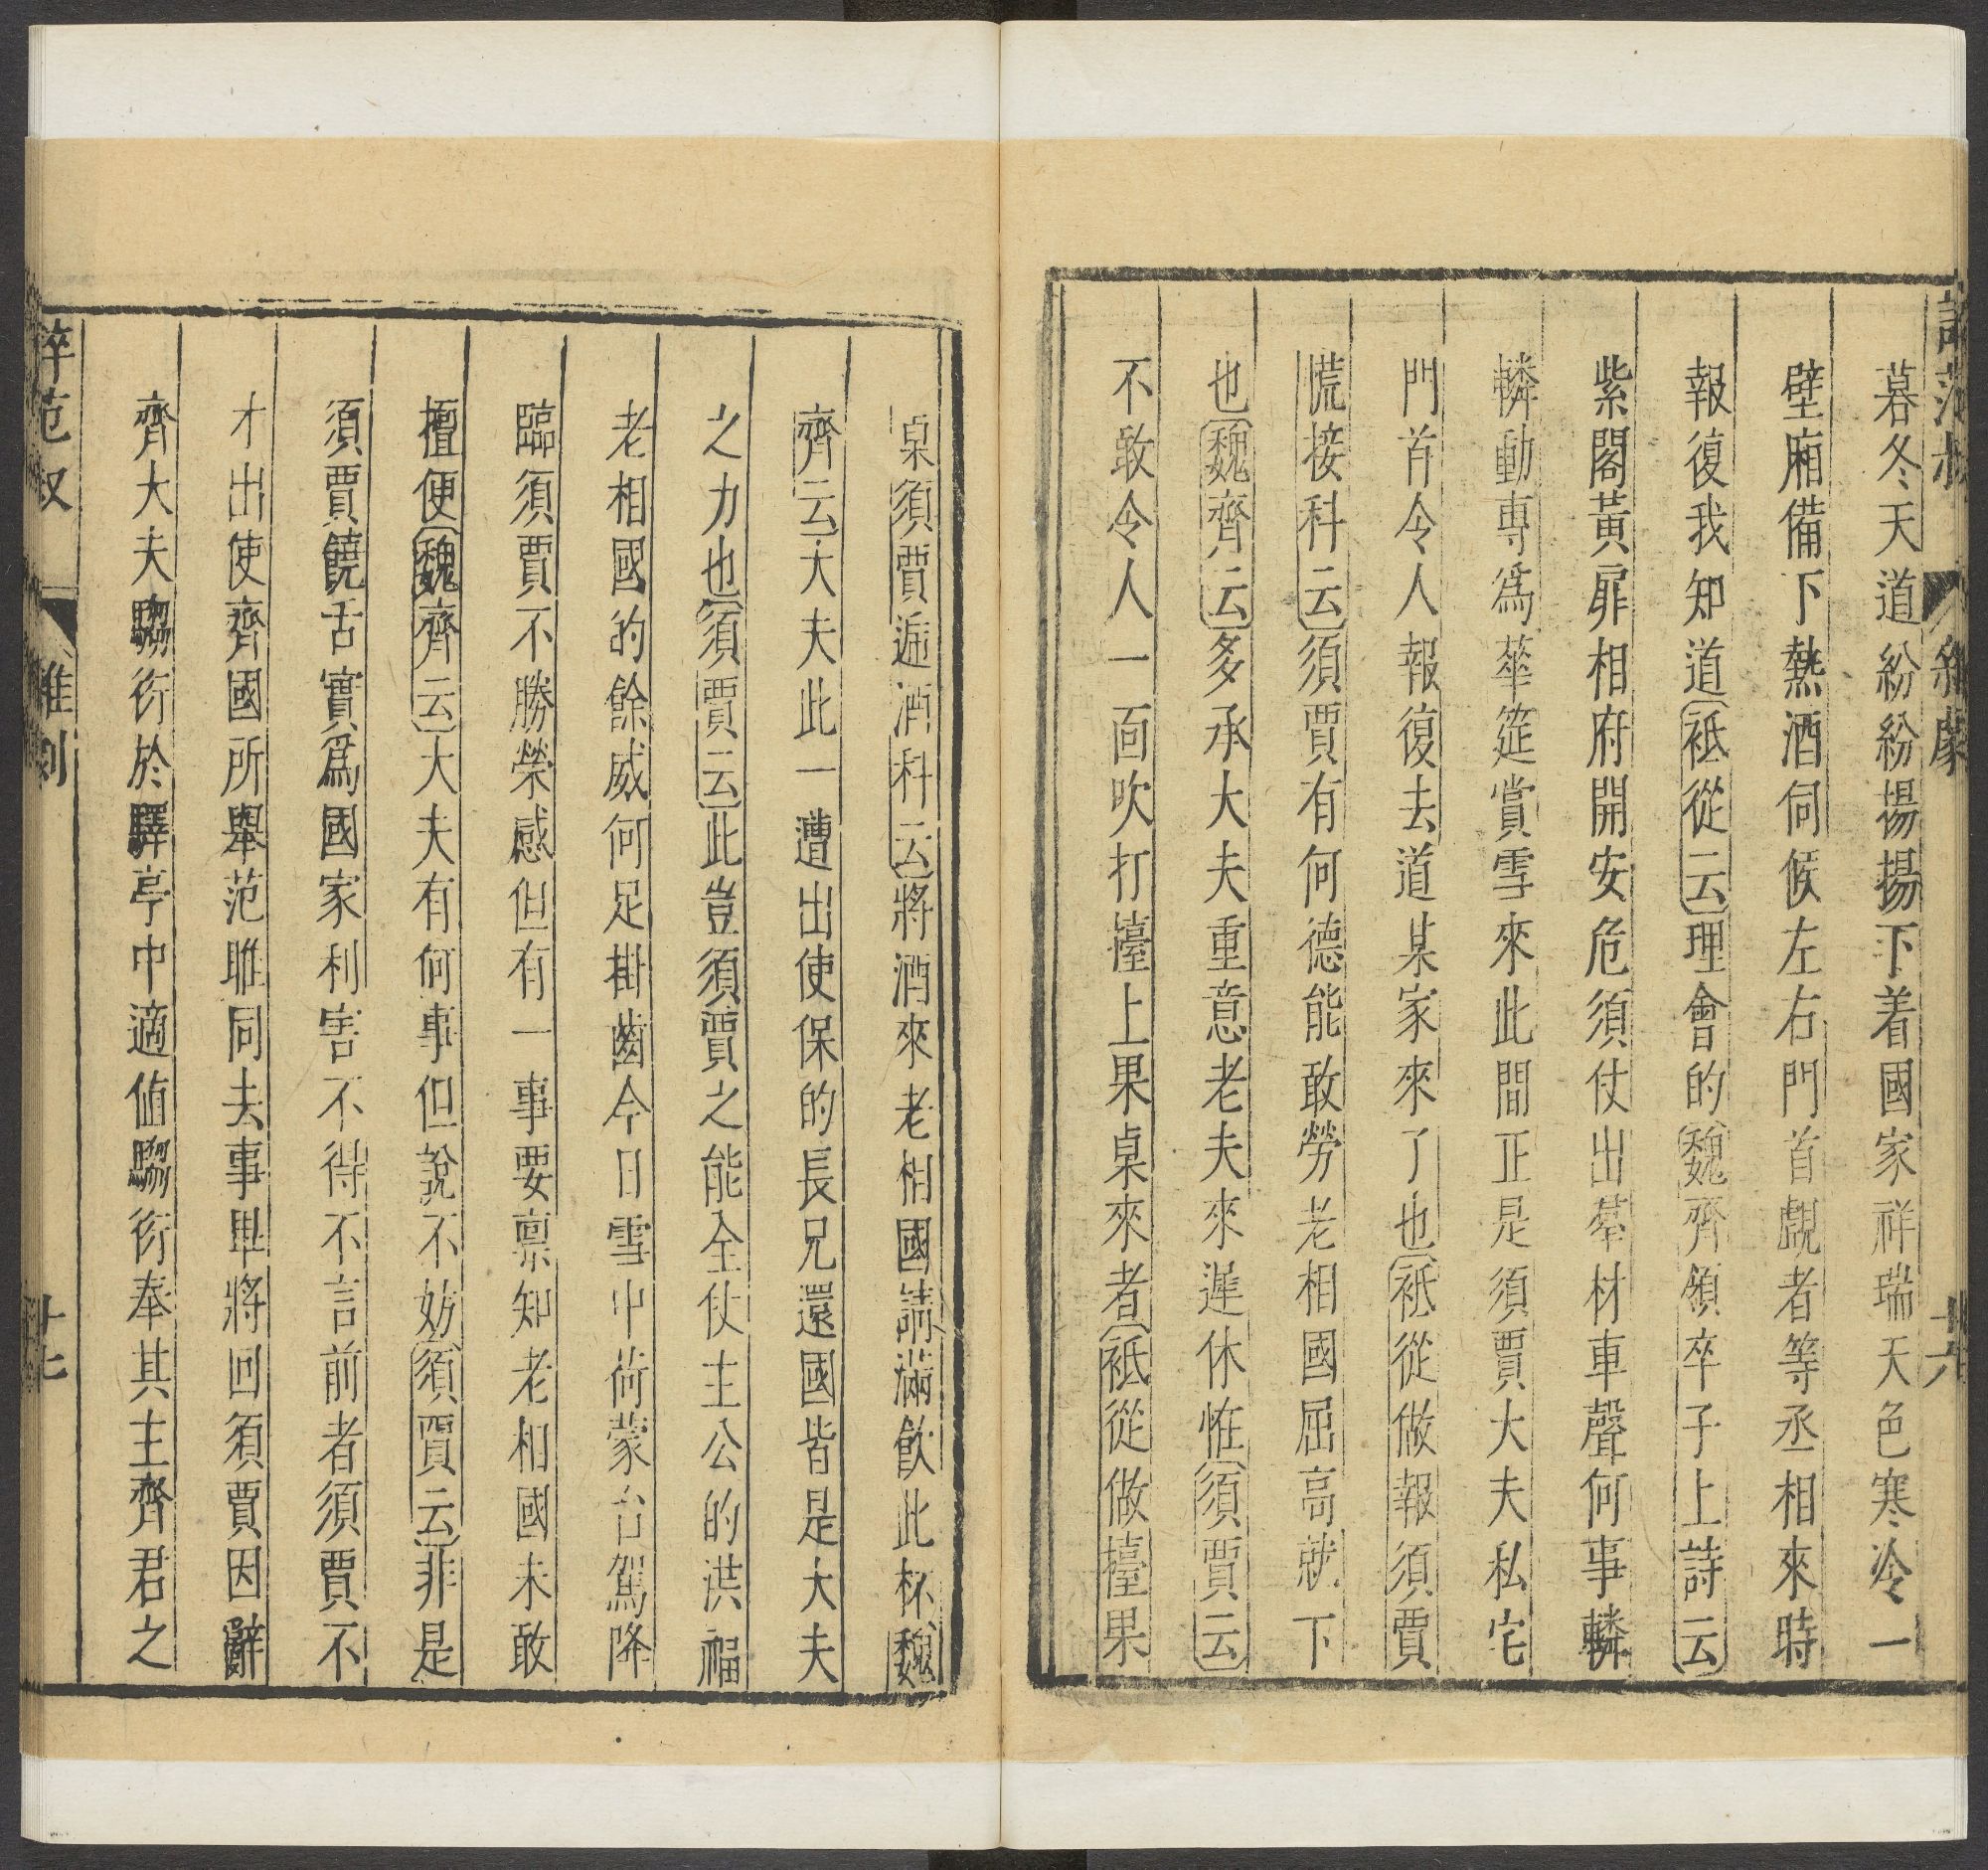 暮冬天道紛紛揚揚下着國家祥瑞天色寒冷一
壁廂備下熱酒伺候左右門首覷者等丞相來時
報復我知道〔祗從云〕理會的〔魏齊領卒子上詩云〕
紫閣黃扉相府開安危須仗出羣材車聲何事轔
轔動專爲華筵賞雪來此間正是須賈大夫私宅
門首令人報復去道某家來了也〔祗從做報須賈
慌接科云〕須賈有何德能敢勞老相國屈高就下
也〔魏齊云〕多承大夫重意老夫來遲休怪〔須賈云〕
不敢令人一面吹打擡上果桌來者〔祗從做擡果
桌須賈遞酒科云〕將酒來老相國請滿飲此杯〔魏
齊云〕大夫此一遭出使保的長兄還國皆是大夫
之力也〔須賈云〕此豈須賈之能全仗主公的洪福
老相國的餘威何足掛齒今日雪中荷蒙台駕降
臨須賈不勝榮感但有一事要稟知老相國未敢
擅便〔魏齊云〕大夫有何事但說不妨〔須賈云〕非是
須賈饒舌實爲國家利害不得不言前者須賈不
才出使齊國所舉范雎同去事畢將回須賈因辭
齊大夫騶衍於驛亭中適值騶衍奉其主齊君之
誶范叔 雜劇 十七